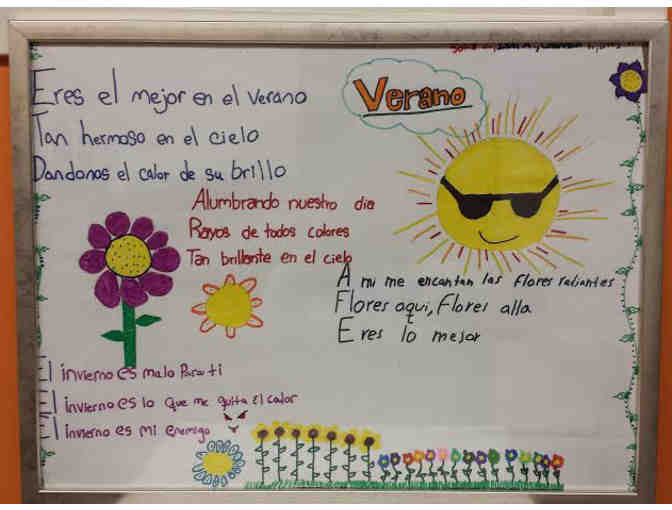 Verano
Eres el mejor en el verano
Tan hermoso en el cielo
Dandonos el calor de su brillo
Alumbrando nuestro dia
Rayos de todos colores
Tan brillante en el cielo
A mi me encantan las flores radiantes
Flores aqui, Flores alla
Eres lo mejor
El invierno es malo Para ti
El invierno es lo que me quita El calor
El invierno es mi Enemigo